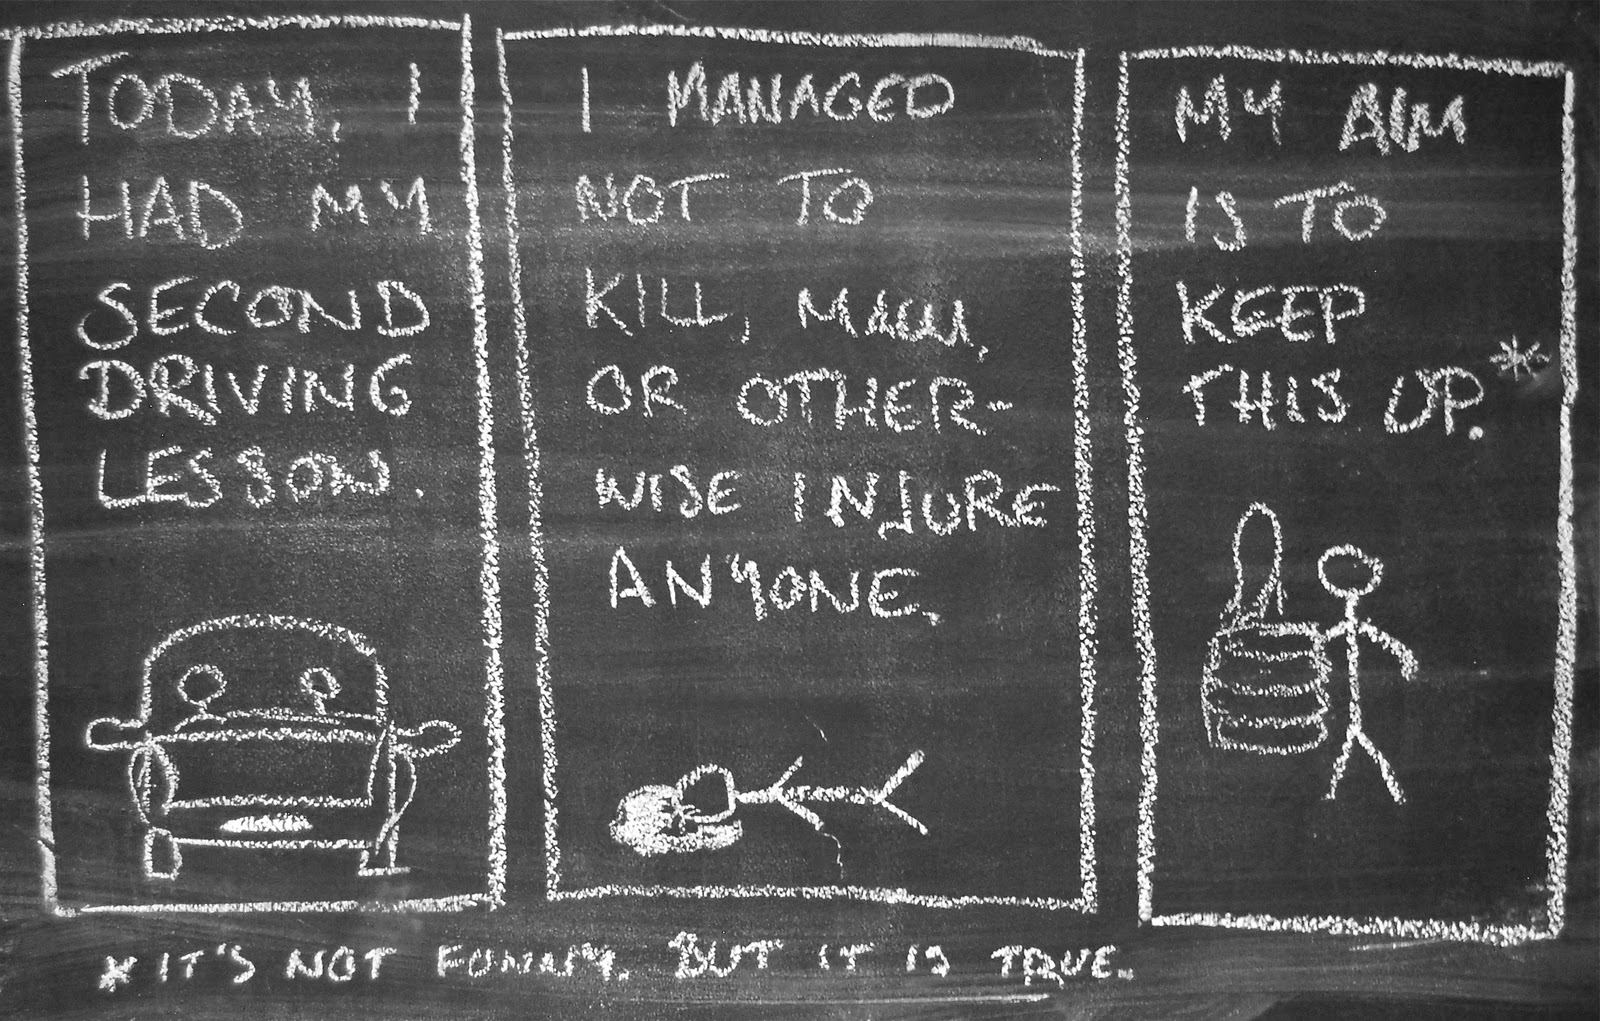 TODAY, I
HAD MY
SECOND
DRIVING
LESSON.
I MANAGED
NOT TO
KILL, MAIM,
OR OTHER-
WISE INJURE
ANYONE.
MY AIM
IS TO
KEEP
THIS UP.*
* IT'S NOT FUNNY. BUT IT IS TRUE.